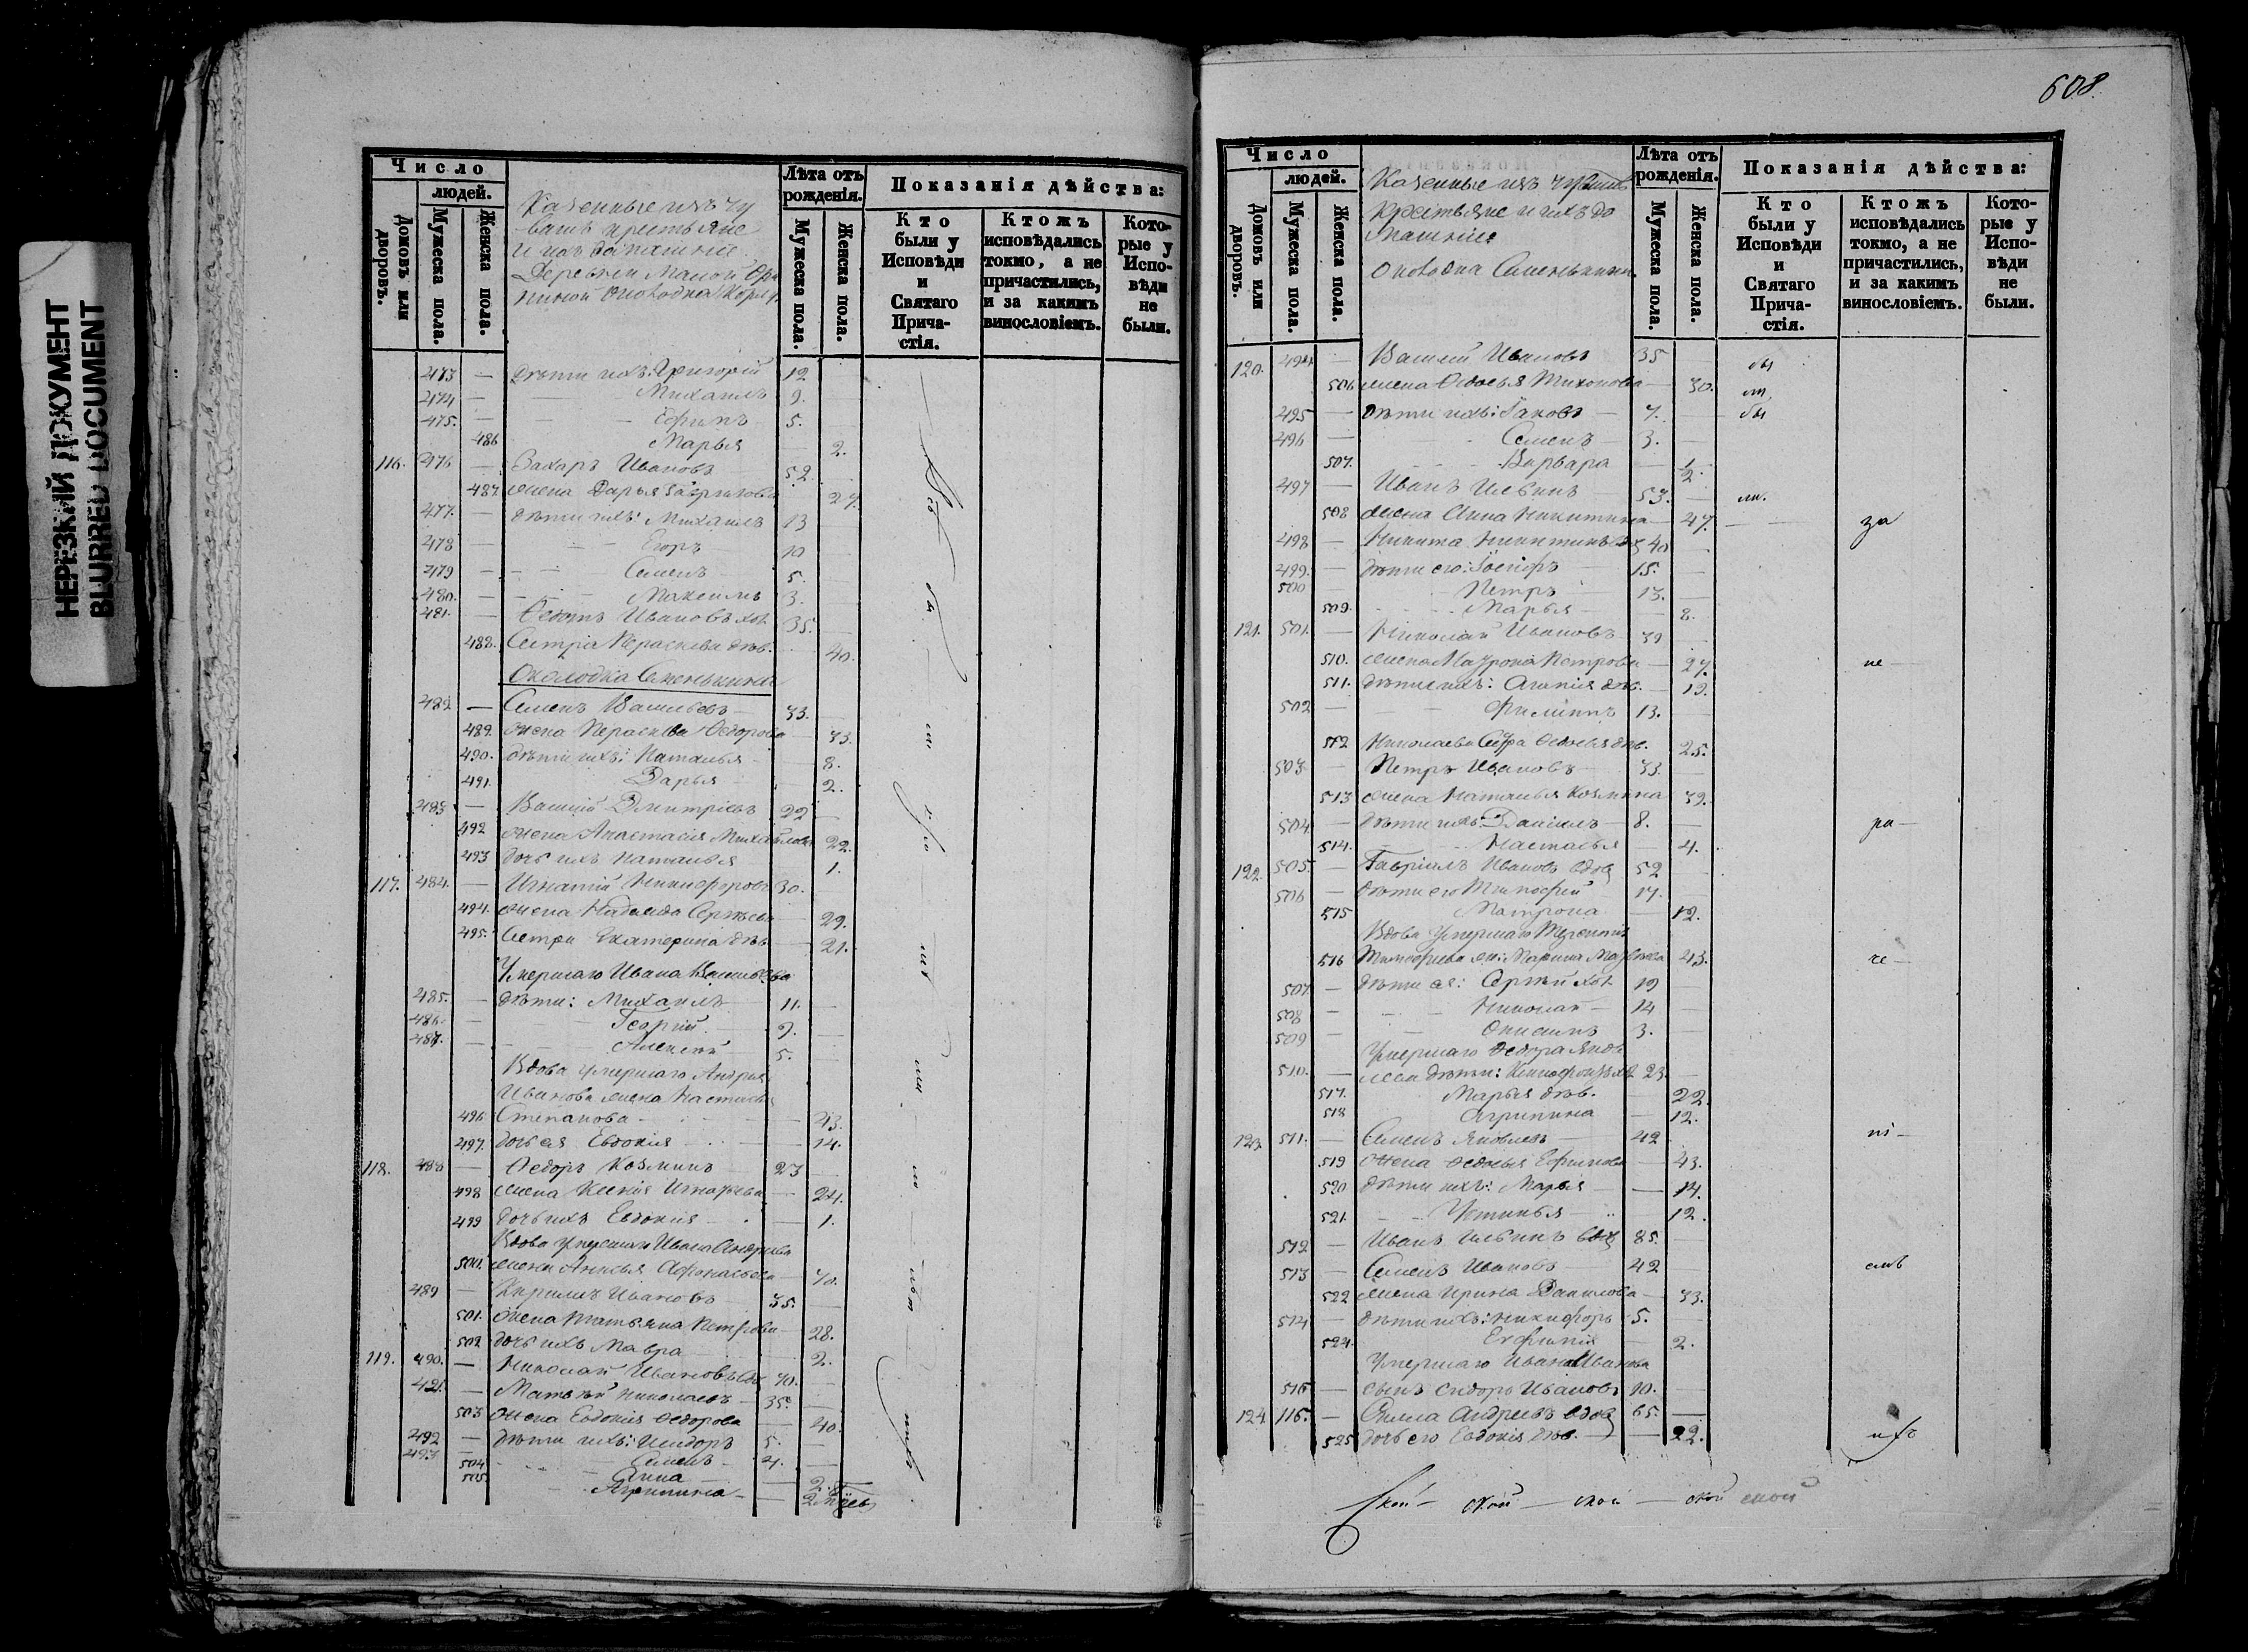 НЕРЕЗКИЙ ДОКУМЕНТ
BLURRED DOCUMENT
Число
людей.
Домовъ или дворовъ.
Мужеска пола.
Женска пола.
Казенные изъ чу
вашъ крестьяне
и ихъ домашніе
Деревни Малой
Лѣта отъ рожденія.
Мужеска пола.
Женска пола.
Показанія дѣйства:
Кто были у Исповѣди и Святаго Причастія.
Ктожъ исповѣдались токмо, а не причастились, и за какимъ винословіемъ.
Которые у Исповѣди не были.
473 — дѣти ихъ: Григорій 12
474 — Михаилъ 9.
475. — Ефимъ 5.
486 Марья — 2.
116. 476 — Захаръ Ивановъ 52.
487 жена Дарья 27.
477. — дѣти ихъ: Михаилъ 13
478 — Егоръ 10
479 — Семенъ 5.
480. — Максимъ 3.
481. — Ѳедотъ Ивановъ хол. 35.
488. Сестра Параскева дѣв. 40.
Околодка Сменькина
482 — Семенъ Васильевъ 33.
489. жена Параскева Ѳедорова 33.
490. дѣти ихъ: Наталья 8.
491. Дарья 2.
483 — Василій Дмитріевъ 22
492 жена Анастасія Михайлова 22.
493 дочь ихъ Наталья 1.
117. 484. — Игнатій Никифоровъ 30.
494. жена Надежда Сергѣева 29.
495. Сестра Екатерина дѣв. 21.
Умершаго Ивана Васильева
485. — дѣти: Михаилъ 11.
486. — Георгій 9.
487. — Алексѣй 5.
Вдова умершаго Андрея
Иванова жена Настасья
496. Степанова 43.
497. дочь ея Евдокія 14.
118. 488 — Ѳедоръ Козминъ 23
498 жена Ксенія Игнатьева 24.
499 дочь ихъ Евдокія 1.
Вдова умершаго Ивана Андреева
500. жена Анисья Афонасьева 70.
489 — Кирилъ Ивановъ 35.
501. жена Татьяна Петрова 28.
502 дочь ихъ Мавра 2.
119. 490. — Николай Ивановъ вдов 70.
491. — Матвѣй Николаевъ 35.
503 жена Евдокія Ѳедорова 40.
492 — дѣти ихъ: Исидоръ 5.
493 — Семенъ 4.
504 Анна 2.
505. Агрипина 2.
608
Число
людей.
Домовъ или дворовъ.
Мужеска пола.
Женска пола.
Казенные изъ чувашъ
крестьяне и ихъ до
машніе
Околодка Сменькина
Лѣта отъ рожденія.
Мужеска пола.
Женска пола.
Показанія дѣйства:
Кто были у Исповѣди и Святаго Причастія.
Ктожъ исповѣдались токмо, а не причастились, и за какимъ винословіемъ.
Которые у Исповѣди не были.
120. 494 — Василій Ивановъ 35 бы
506 жена Ѳедосья Тихонова 30.
495 — дѣти ихъ: Іаковъ 7. бы
496 — Семенъ 3.
507. Варвара 1/2
497 — Иванъ Ильинъ 53. ли.
508 жена Анна Никитина 47. за
498 — Никита Никитинъ вд 40
499. — дѣти его: Іосифъ 15.
500 Петръ 13.
509. Марья 8.
121. 501. — Николай Ивановъ 39
510. жена Матрона Петрова 27. не
511. дѣти ихъ: Агапія дѣв. 19.
502 — Филиппъ 13.
512 Николаева Сестра Ѳедосья дѣв. 25.
503 — Петръ Ивановъ 33.
513 жена Наталья Козмина 39.
504 — дѣти ихъ: Даніилъ 8. ра
514. Настасья 4.
122. 505. — Гавріилъ Ивановъ вдов 52
506 — дѣти его Тимофей 17.
515 Матрона 12.
Вдова умершаго
516 Тимофеева жен: Марина Матвѣева 43. че
507. — дѣти ея: Сергѣй хол 19
508 — Николай 14
509 — Онисимъ 3.
Умершаго Ѳедора Яков
510. — лева дѣти: 23.
517. Марья дѣв. 22.
518 Агрипина 12.
123. 511. — Семенъ Яковлевъ 42 ні
519 жена Ѳедосья Ефимова 43.
520 дѣти ихъ: Марья 14.
521. Устинья 12.
512 — Иванъ Ильинъ вдов 85.
513 — Семенъ Ивановъ 42 емъ
522 жена Ирина Данилова 33.
514 — дѣти ихъ: Никифоръ 5.
524. Евфимія 2.
Умершаго Ивана Иванова
515 — сынъ Сидоръ Ивановъ 10.
124. 116. — Андреевъ вдов 65.
525 дочь его Евдокія дѣв. 22. ихъ
ской — ской — ской — ской ской